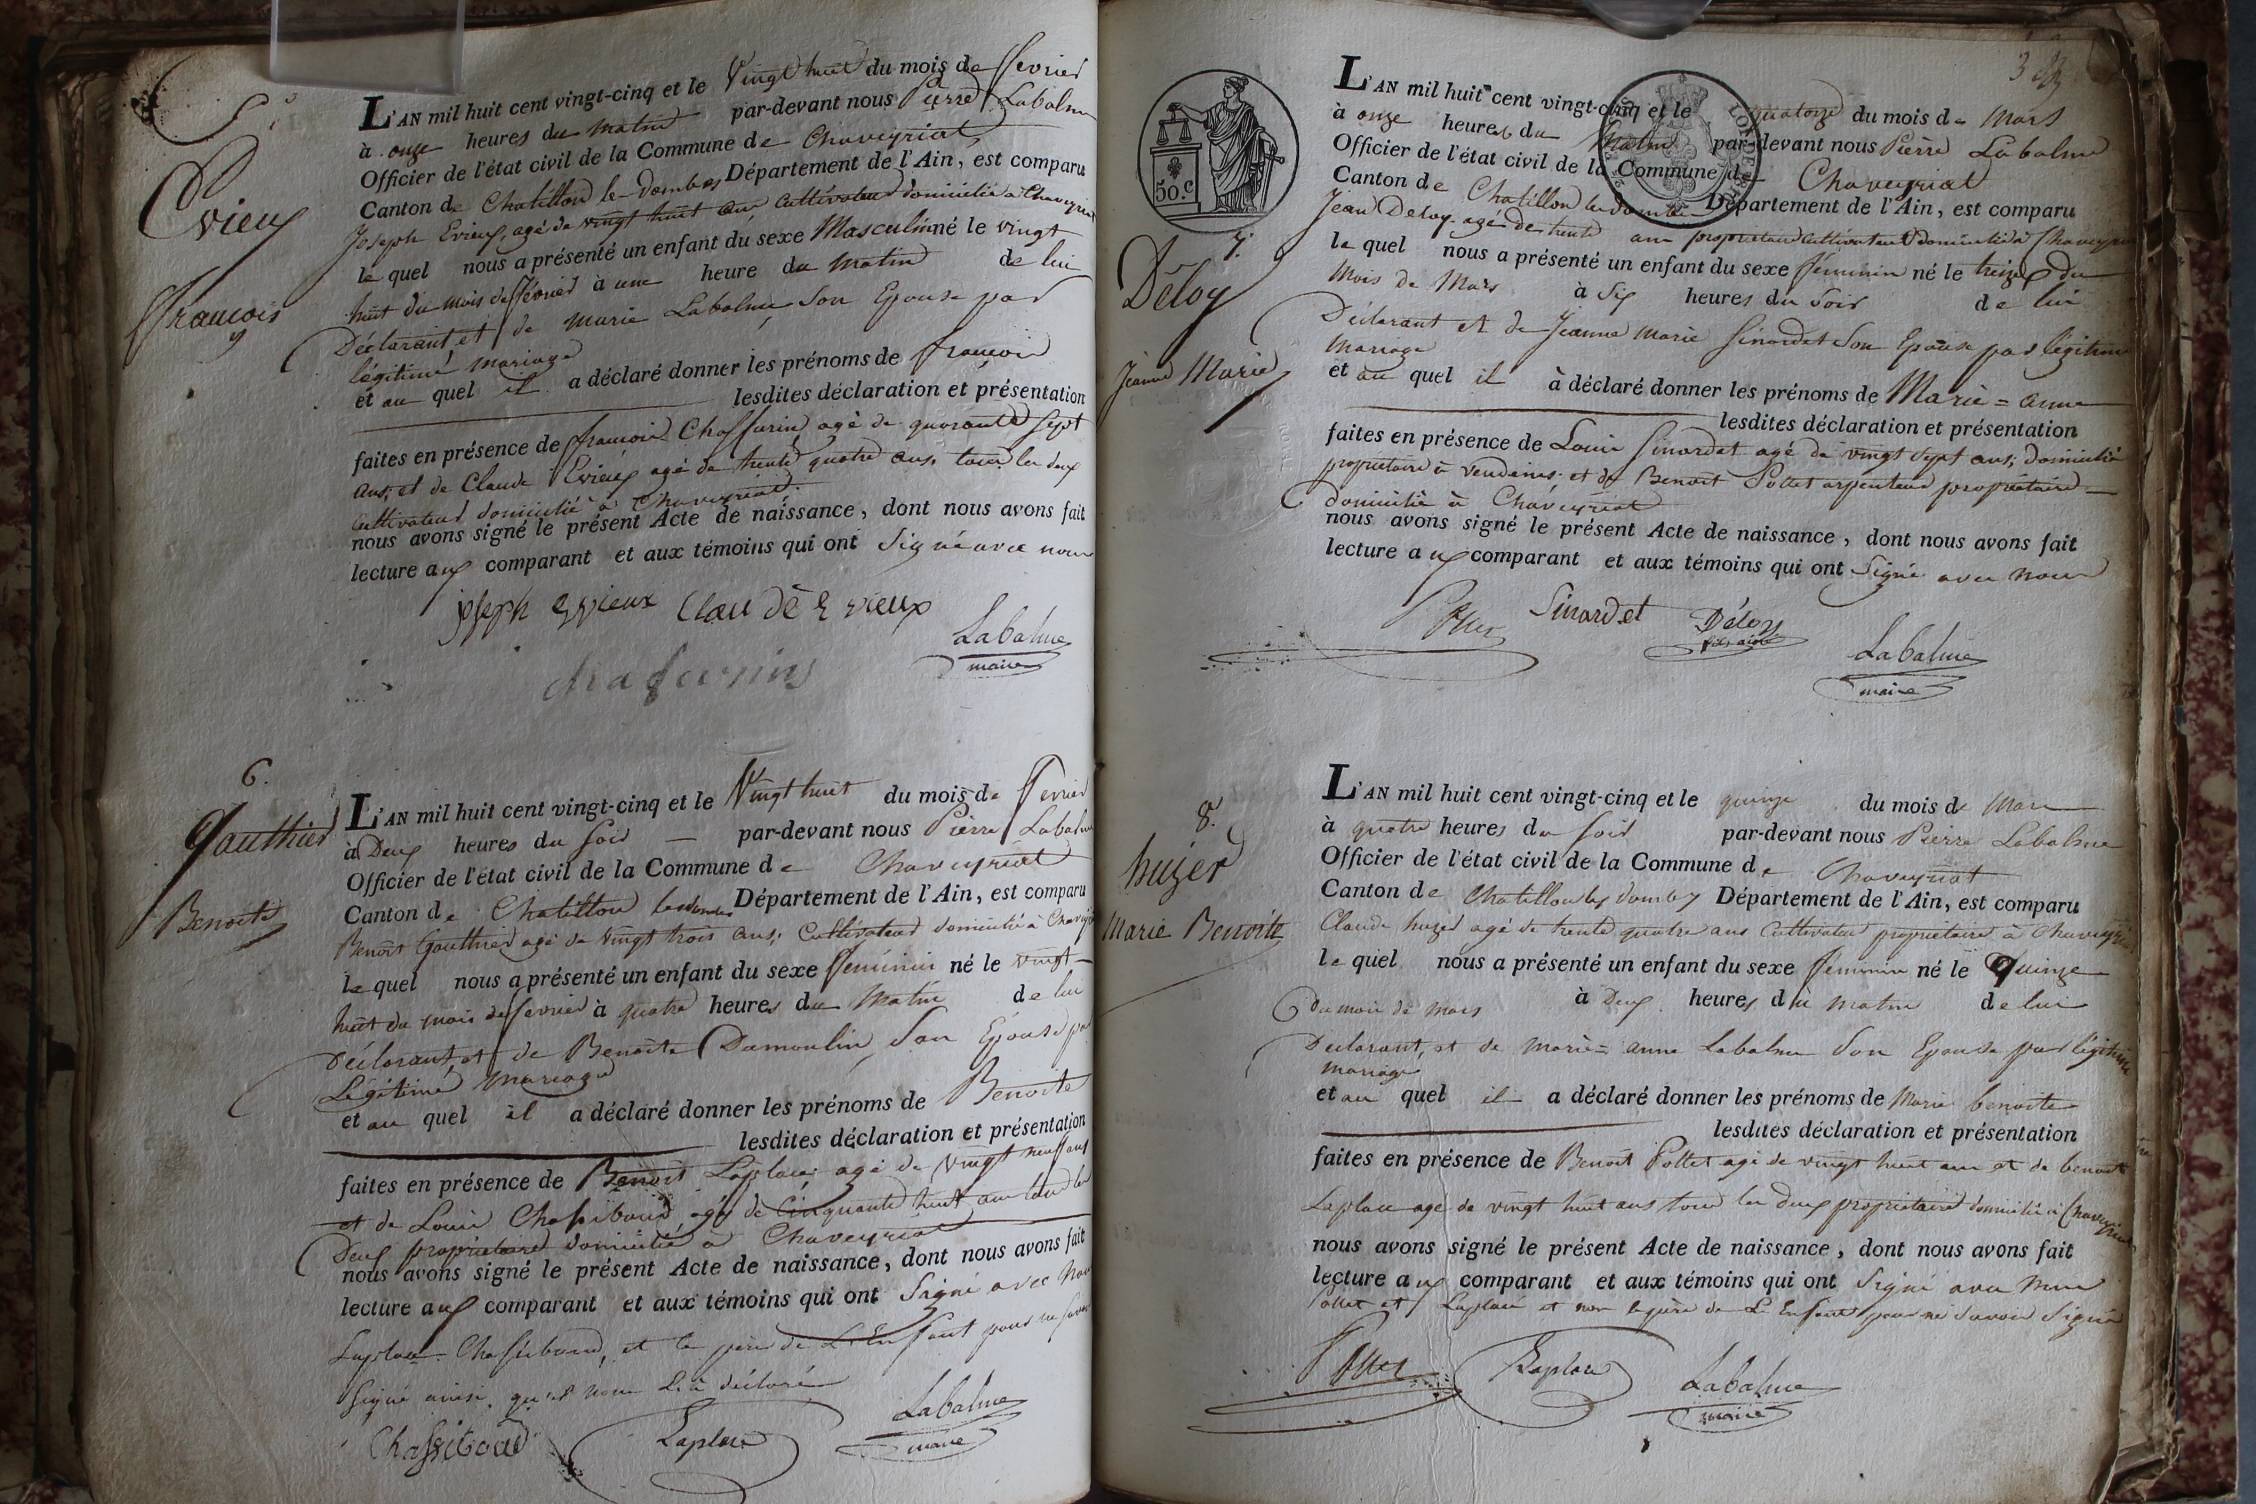 5
Evieux
François
L'AN mil huit cent vingt-cinq et le Vingt huit du mois de février
à onze heures du matin par-devant nous Pierre Labalme
Officier de l'état civil de la Commune de Chaveyriat
Canton de Chatillon les Dombes Département de l'Ain, est comparu
Joseph Evieux, agé de vingt huit ans cultivateur domicilié à Chaveyriat
le quel nous a présenté un enfant du sexe Masculin né le vingt
huit du mois de février à une heure du matin de lui
Déclarant, et de Marie Labalme son Epouse par
légitime mariage
et au quel il a déclaré donner les prénoms de françois
lesdites déclaration et présentation
faites en présence de françois Chaffurin agé de quarante sept
ans, et de Claude Evieux agé de trente quatre ans, tous les deux
cultivateurs domicilié à Chaveyriat.
nous avons signé le présent Acte de naissance, dont nous avons fait
lecture aux comparant et aux témoins qui ont signé avec nous
joseph Evieux Claudè Evieux
Labalme
maire
chafurins
6.
Gauthier
Benoite
L'AN mil huit cent vingt-cinq et le Vingt huit du mois de février
à Deux heures du soir par-devant nous Pierre Labalme
Officier de l'état civil de la Commune de Chaveyriat
Canton de Chatillon les Dombes Département de l'Ain, est comparu
Benoit Gauthier agé de vingt trois ans, cultivateur domicilié à Chaveyriat
le quel nous a présenté un enfant du sexe féminin né le vingt-
huit du mois de février à quatre heures du matin de lui
Déclarant, et de Benoite Dumoulin, son Epouse par
Légitime mariage
et au quel il a déclaré donner les prénoms de Benoite
lesdites déclaration et présentation
faites en présence de Benoit Laplace agé de vingt neuf ans
et de Louis Chassiboud, agé de cinquante huit ans tous les
Deux propriétaires domicilié à Chaveyriat
nous avons signé le présent Acte de naissance, dont nous avons fait
lecture aux comparant et aux témoins qui ont signé avec nous
Laplace Chassiboud, et le père de L'Enfant pour ne savoir
signé ainsi qu'il nous l'a déclaré
Chassiboud Laplace Labalme
maire
50.c
3
7.
Déloy
Jeanne Marie
L'AN mil huit cent vingt-cinq et le quatorze du mois de Mars
à onze heures du matin par-devant nous Pierre Labalme
Officier de l'état civil de la Commune de Chaveyriat
Canton de Chatillon les Dombes Département de l'Ain, est comparu
Jean Deloy agé de trente ans propriétaire cultivateur domicilié à Chaveyriat
le quel nous a présenté un enfant du sexe féminin né le treize du
mois de Mars à six heures du soir de lui
Déclarant et de Jeanne Marie Sinardet son Epouse par légitime
mariage
et au quel il à déclaré donner les prénoms de Marie = anne
lesdites déclaration et présentation
faites en présence de Louis Sinardet agé de vingt sept ans, domicilié
propriétaire à Vandeins et de Benoit Pottet arpenteur propriétaire
domicilié à Chaveyriat
nous avons signé le présent Acte de naissance, dont nous avons fait
lecture aux comparant et aux témoins qui ont signé avec nous
Pottet Sinardet Déloy
fils ainé
Labalme
maire
8.
huzer
Marie Benoite
L'AN mil huit cent vingt-cinq et le quinze du mois de Mars
à quatre heures du soir par-devant nous Pierre Labalme
Officier de l'état civil de la Commune de Chaveyriat
Canton de Chatillon les Dombes Département de l'Ain, est comparu
Claude huzer agé de trente quatre ans cultivateur propriétaire à Chaveyriat
le quel nous a présenté un enfant du sexe féminin né le Quinze
du mois de mars à Deux heures du matin de lui
Déclarant, et de Marie = anne Labalme son Epouse par légitime
mariage
et au quel il a déclaré donner les prénoms de Marie benoite
lesdites déclaration et présentation
faites en présence de Benoit Pottet agé de vingt huit ans et de benoit
Laplace agé de vingt huit ans tous les deux propriétaires domicilié à Chaveyriat
nous avons signé le présent Acte de naissance, dont nous avons fait
lecture aux comparant et aux témoins qui ont signé avec nous
Pottet et Laplace et non le père de L'Enfant pour ne savoir signé
Pottet Laplace Labalme
maire